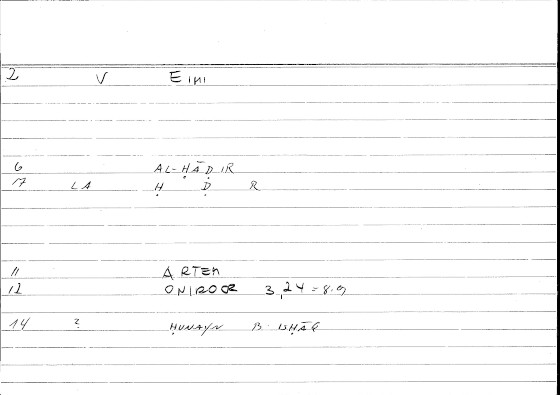 2 V Eini
6 AL-ḤĀḌIR
17 LA Ḥ Ḍ R
11 ARTEM
12 ONIROCR 3,24 = 8.9
14 ? ḤUNAYN B. ISḤĀQ